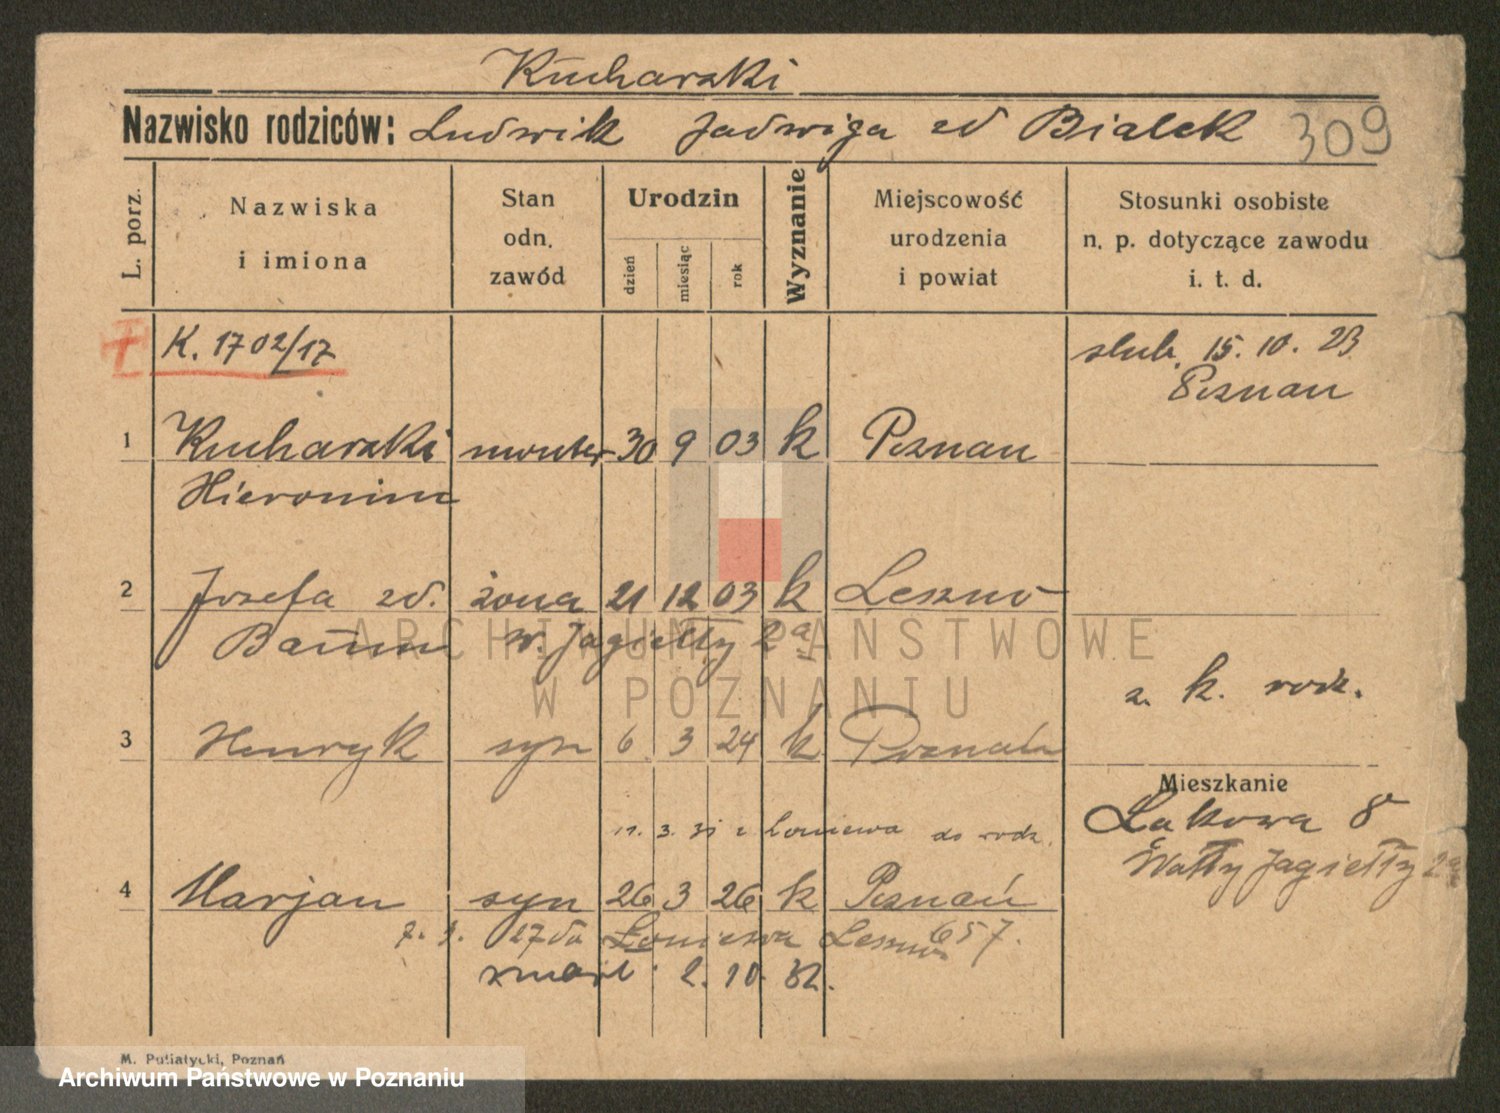 Kucharski
Nazwisko rodziców: Ludwik Jadwiga zd Bialek 309
L. porz.
Nazwiska i imiona
Stan odn. zawód
Urodzin
dzień
miesiąc
rok
Wyznanie
Miejscowość urodzenia i powiat
Stosunki osobiste n. p. dotyczące zawodu i. t. d.
K. 1702/17
slub. 15. 10. 23
Poznan
1 Kucharski monter 30 9 03 k Poznan
Hieronim
2 Jozefa zd. żona 21 12 03 k Leszno
Baum W. Jagielly 2a
z. k. rodz.
3 Henryk syn 6. 3 24 k Poznań
Mieszkanie
Łąkowa 8
11. 3. 31 z Loniewa do rodz.
Wały Jagiełły 2a
4 Marjan syn 26 3 26 k Poznań
7. 9. 27 do Łoniewa Leszno 657.
zmarł 2. 10. 32.
M. Putiatycki, Poznań
ARCHIWUM PAŃSTWOWE
W POZNANIU
Archiwum Państwowe w Poznaniu